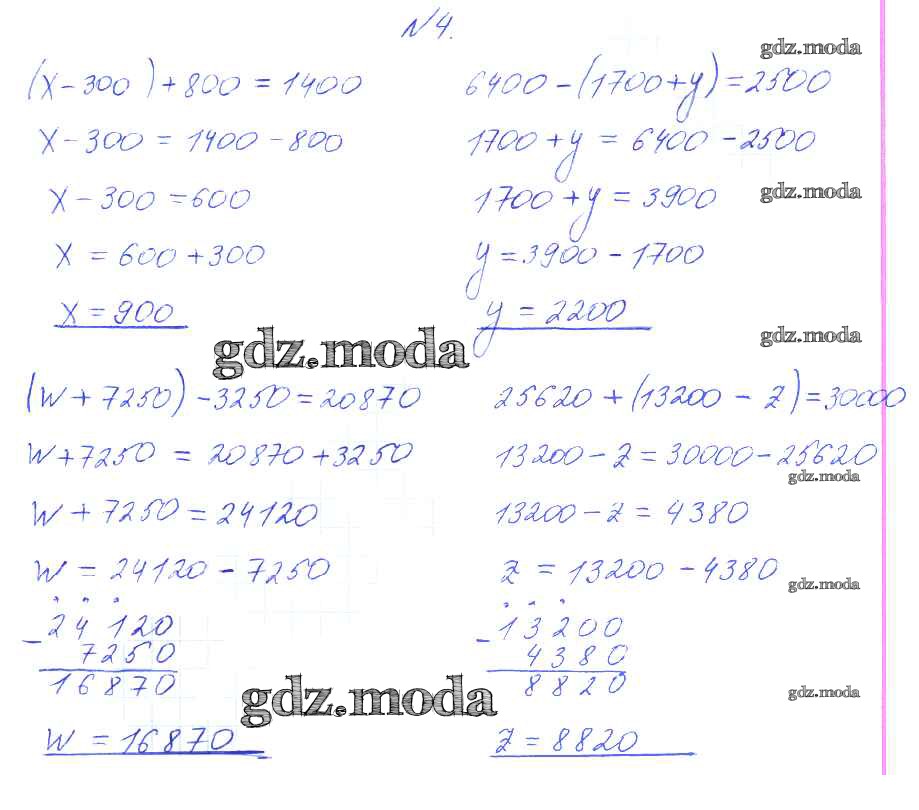 №4.
(x-300)+800=1400
x-300=1400-800
x-300=600
x=600+300
x=900
6400-(1700+y)=2500
1700+y=6400-2500
1700+y=3900
y=3900-1700
y=2200
(w+7250)-3250=20870
w+7250=20870+3250
w+7250=24120
w=24120-7250
-24120
7250
16870
w=16870
25620+(13200-z)=30000
13200-z=30000-25620
13200-z=4380
z=13200-4380
-13200
4380
8820
z=8820
gdz.moda
gdz.moda
gdz.moda
gdz.moda
gdz.moda
gdz.moda
gdz.moda
gdz.moda